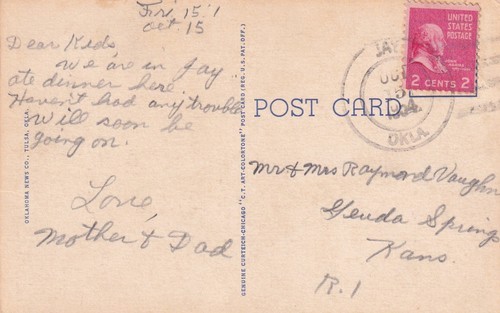 Fri. 15.
Oct 15
Dear Kids
We are in Jay
ate dinner here
Haven't had any trouble
Will soon be
going on.
Love
Mother & Dad
OKLAHOMA NEWS CO., TULSA, OKLA.
GENUINE CURTEICH-CHICAGO "C.T. ART-COLORTONE" POST CARD (REG. U.S. PAT. OFF.)
POST CARD
UNITED
STATES
POSTAGE
2 CENTS 2
JAY
OCT
15
OKLA.
Mr & Mrs Raymond Vaughn
Geuda Springs
Kans.
R. 1